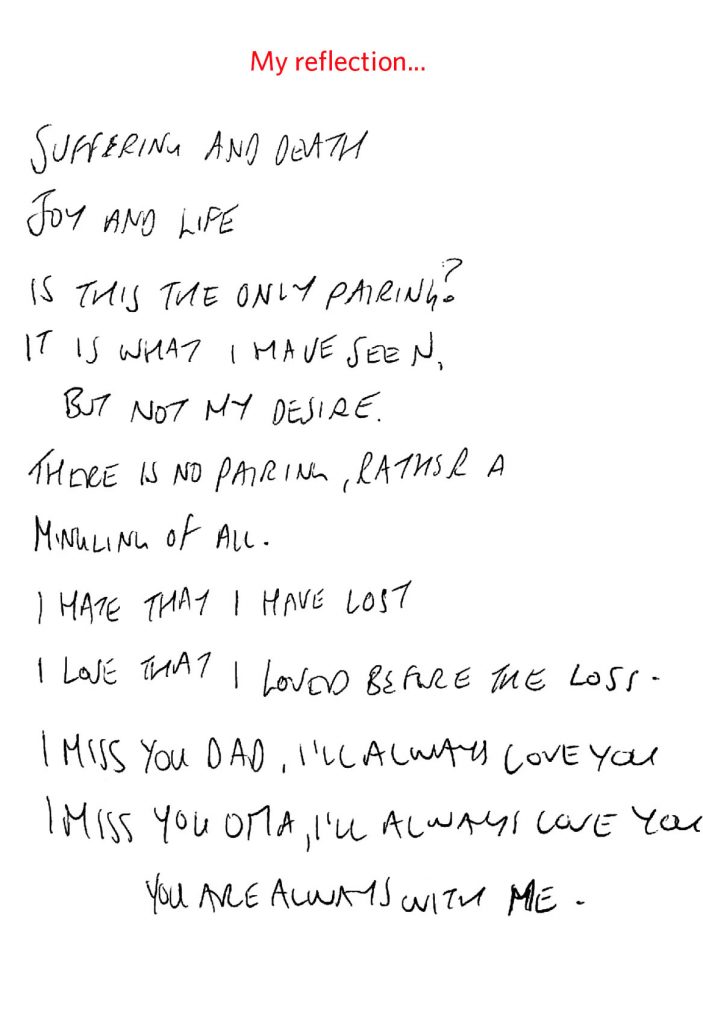 My reflection...
SUFFERING AND DEATH
JOY AND LIFE
IS THIS THE ONLY PAIRING?
IT IS WHAT I HAVE SEEN,
BUT NOT MY DESIRE.
THERE IS NO PAIRING, RATHER A
MINGLING OF ALL.
I HATE THAT I HAVE LOST
I LOVE THAT I LOVED BEFORE THE LOSS.
I MISS YOU DAD, I'LL ALWAYS LOVE YOU
I MISS YOU OMA, I'LL ALWAYS LOVE YOU
YOU ARE ALWAYS WITH ME.